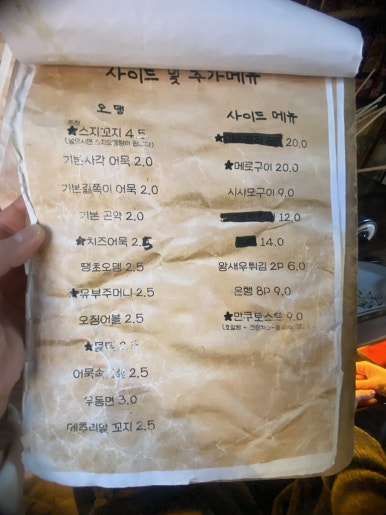 사이드 및 추가메뉴
오뎅
추천
★스지꼬지 4.5
기본사각 어묵 2.0
기본길쭉이 어묵 2.0
기본 곤약 2.0
★치즈어묵 2.5
땡초오뎅 2.5
★유부주머니 2.5
오징어볼 2.5
★
어묵속 2.5
우동면 3.0
메추리알 꼬지 2.5
사이드 메뉴
★ 20.0
★메로구이 20.0
시사모구이 9.0
12.0
14.0
왕새우튀김 2P 6.0
은행 8P 9.0
★만쿠토스트 9.0